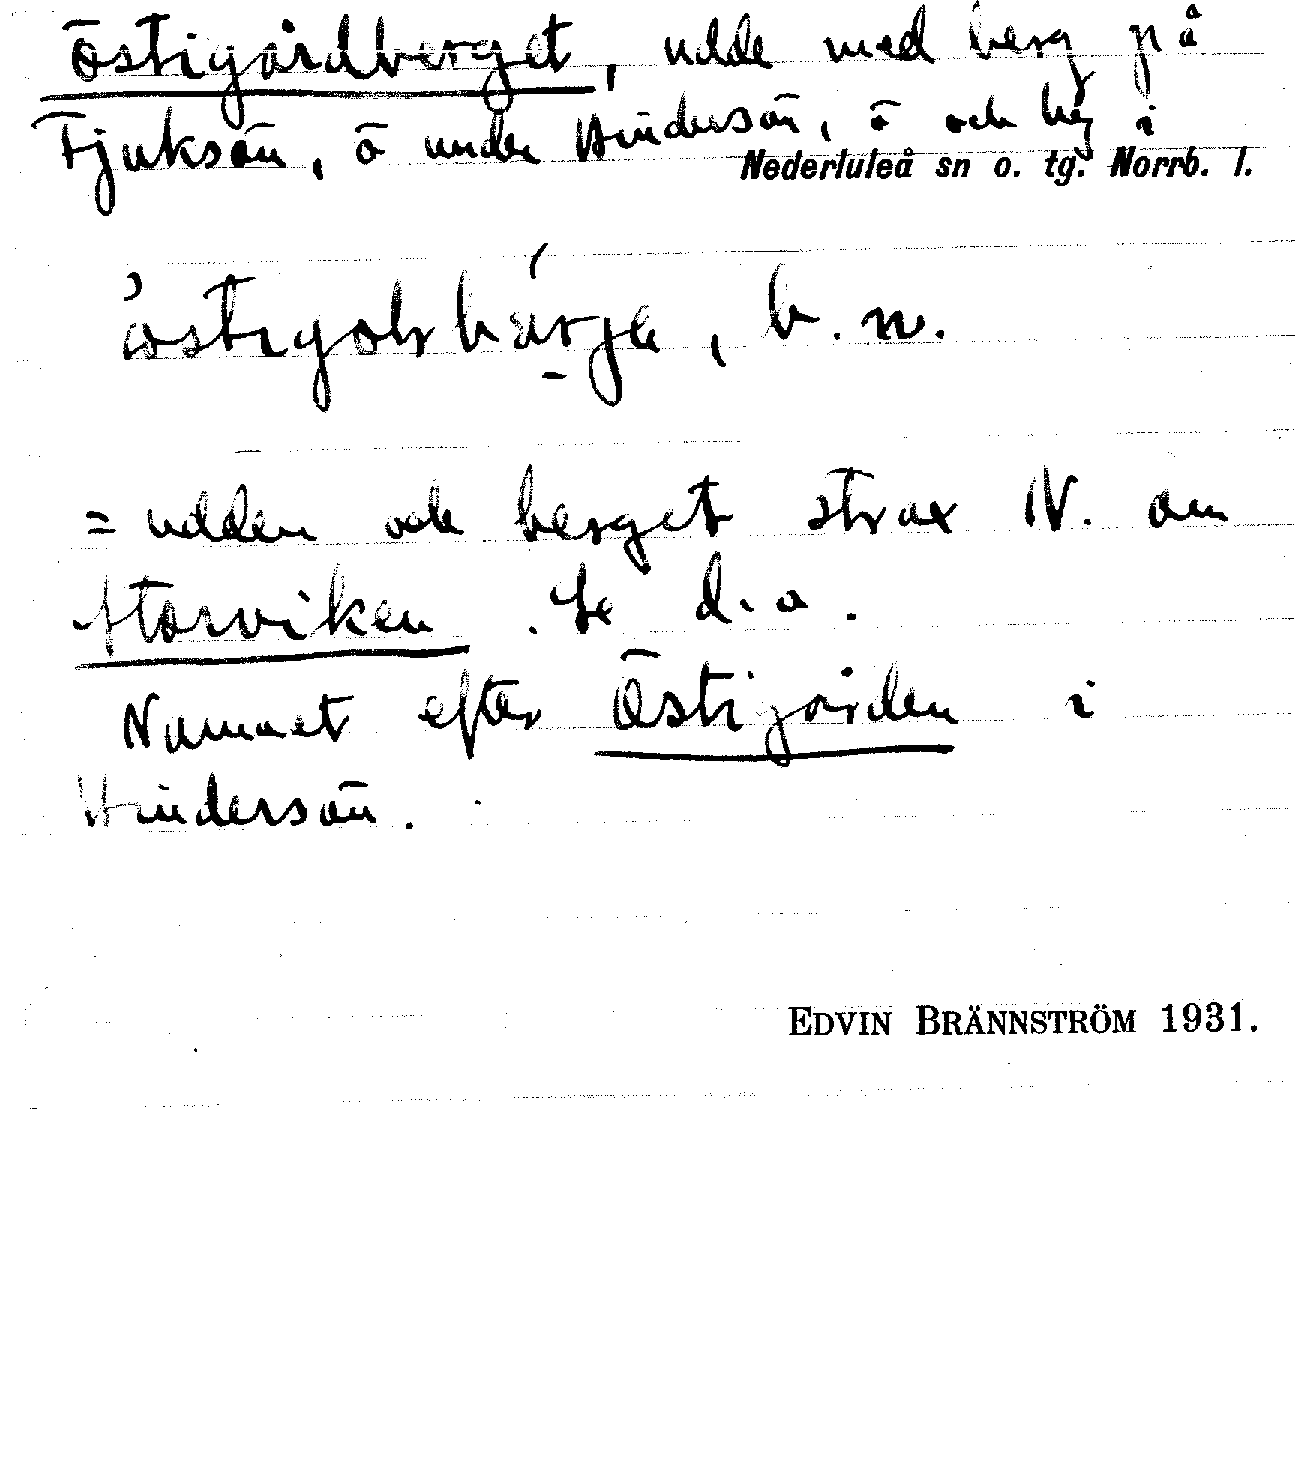 Östigårdberget, udde med berg på
Fjuksön, ö under Hindersön, ö och by i
Nederluleå sn o. tg. Norrb. l.
b. n.
= udden och berget strax N. om
Storviken. Se d. o.
Namnet efter Östigården i
Hindersön.
EDVIN BRÄNNSTRÖM 1931.